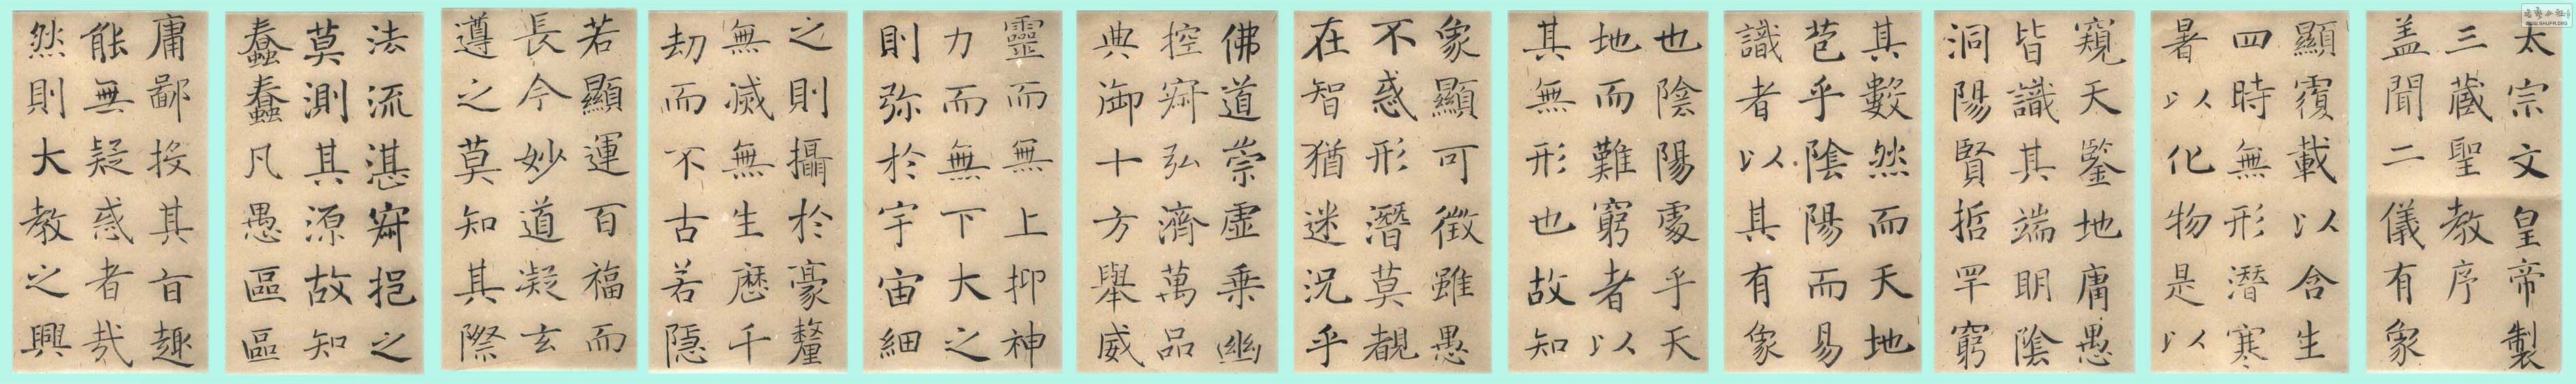 太宗文皇帝製
三藏聖教序
盖聞二儀有象
顯覆載以含生
四時無形潛寒
暑以化物是以
窺天鑒地庸愚
皆識其端明陰
洞陽賢哲罕窮
其數然而天地
苞乎陰陽而易
識者以其有象
也陰陽處乎天
地而難窮者以
其無形也故知
象顯可徵雖愚
不惑形潛莫覩
在智猶迷況乎
佛道崇虛乘幽
控寂弘濟萬品
典御十方舉威
靈而無上抑神
力而無下大之
則弥於宇宙細
之則攝於豪釐
無滅無生歷千
劫而不古若隱
若顯運百福而
長今妙道凝玄
遵之莫知其際
法流湛寂挹之
莫測其源故知
蠢蠢凡愚區區
庸鄙投其旨趣
能無疑惑者哉
然則大教之興